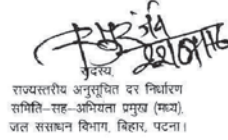 सदस्य,
राज्यस्तरीय अनुसूचित दर निर्धारण
समिति-सह-अभियंता प्रमुख (मध्य),
जल संसाधन विभाग, बिहार, पटना।